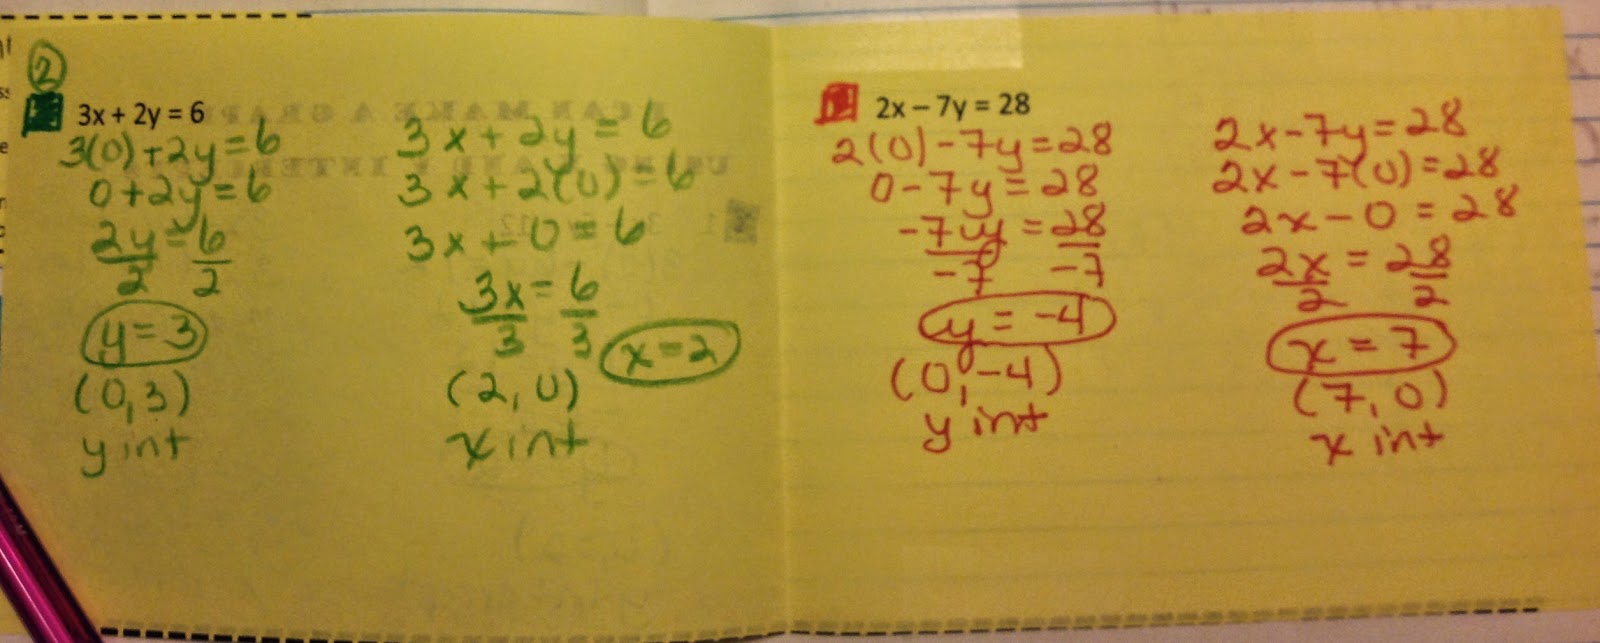 2
3x + 2y = 6
3(0) + 2y = 6
0 + 2y = 6
2y = 6
2 2
y = 3
(0, 3)
y int
3x + 2y = 6
3x + 2(0) = 6
3x + 0 = 6
3x = 6
3 3
x = 2
(2, 0)
x int
2x – 7y = 28
2(0) - 7y = 28
0 - 7y = 28
-7y = 28
-7 -7
y = -4
(0, -4)
y int
2x - 7y = 28
2x - 7(0) = 28
2x - 0 = 28
2x = 28
2 2
x = 7
(7, 0)
x int